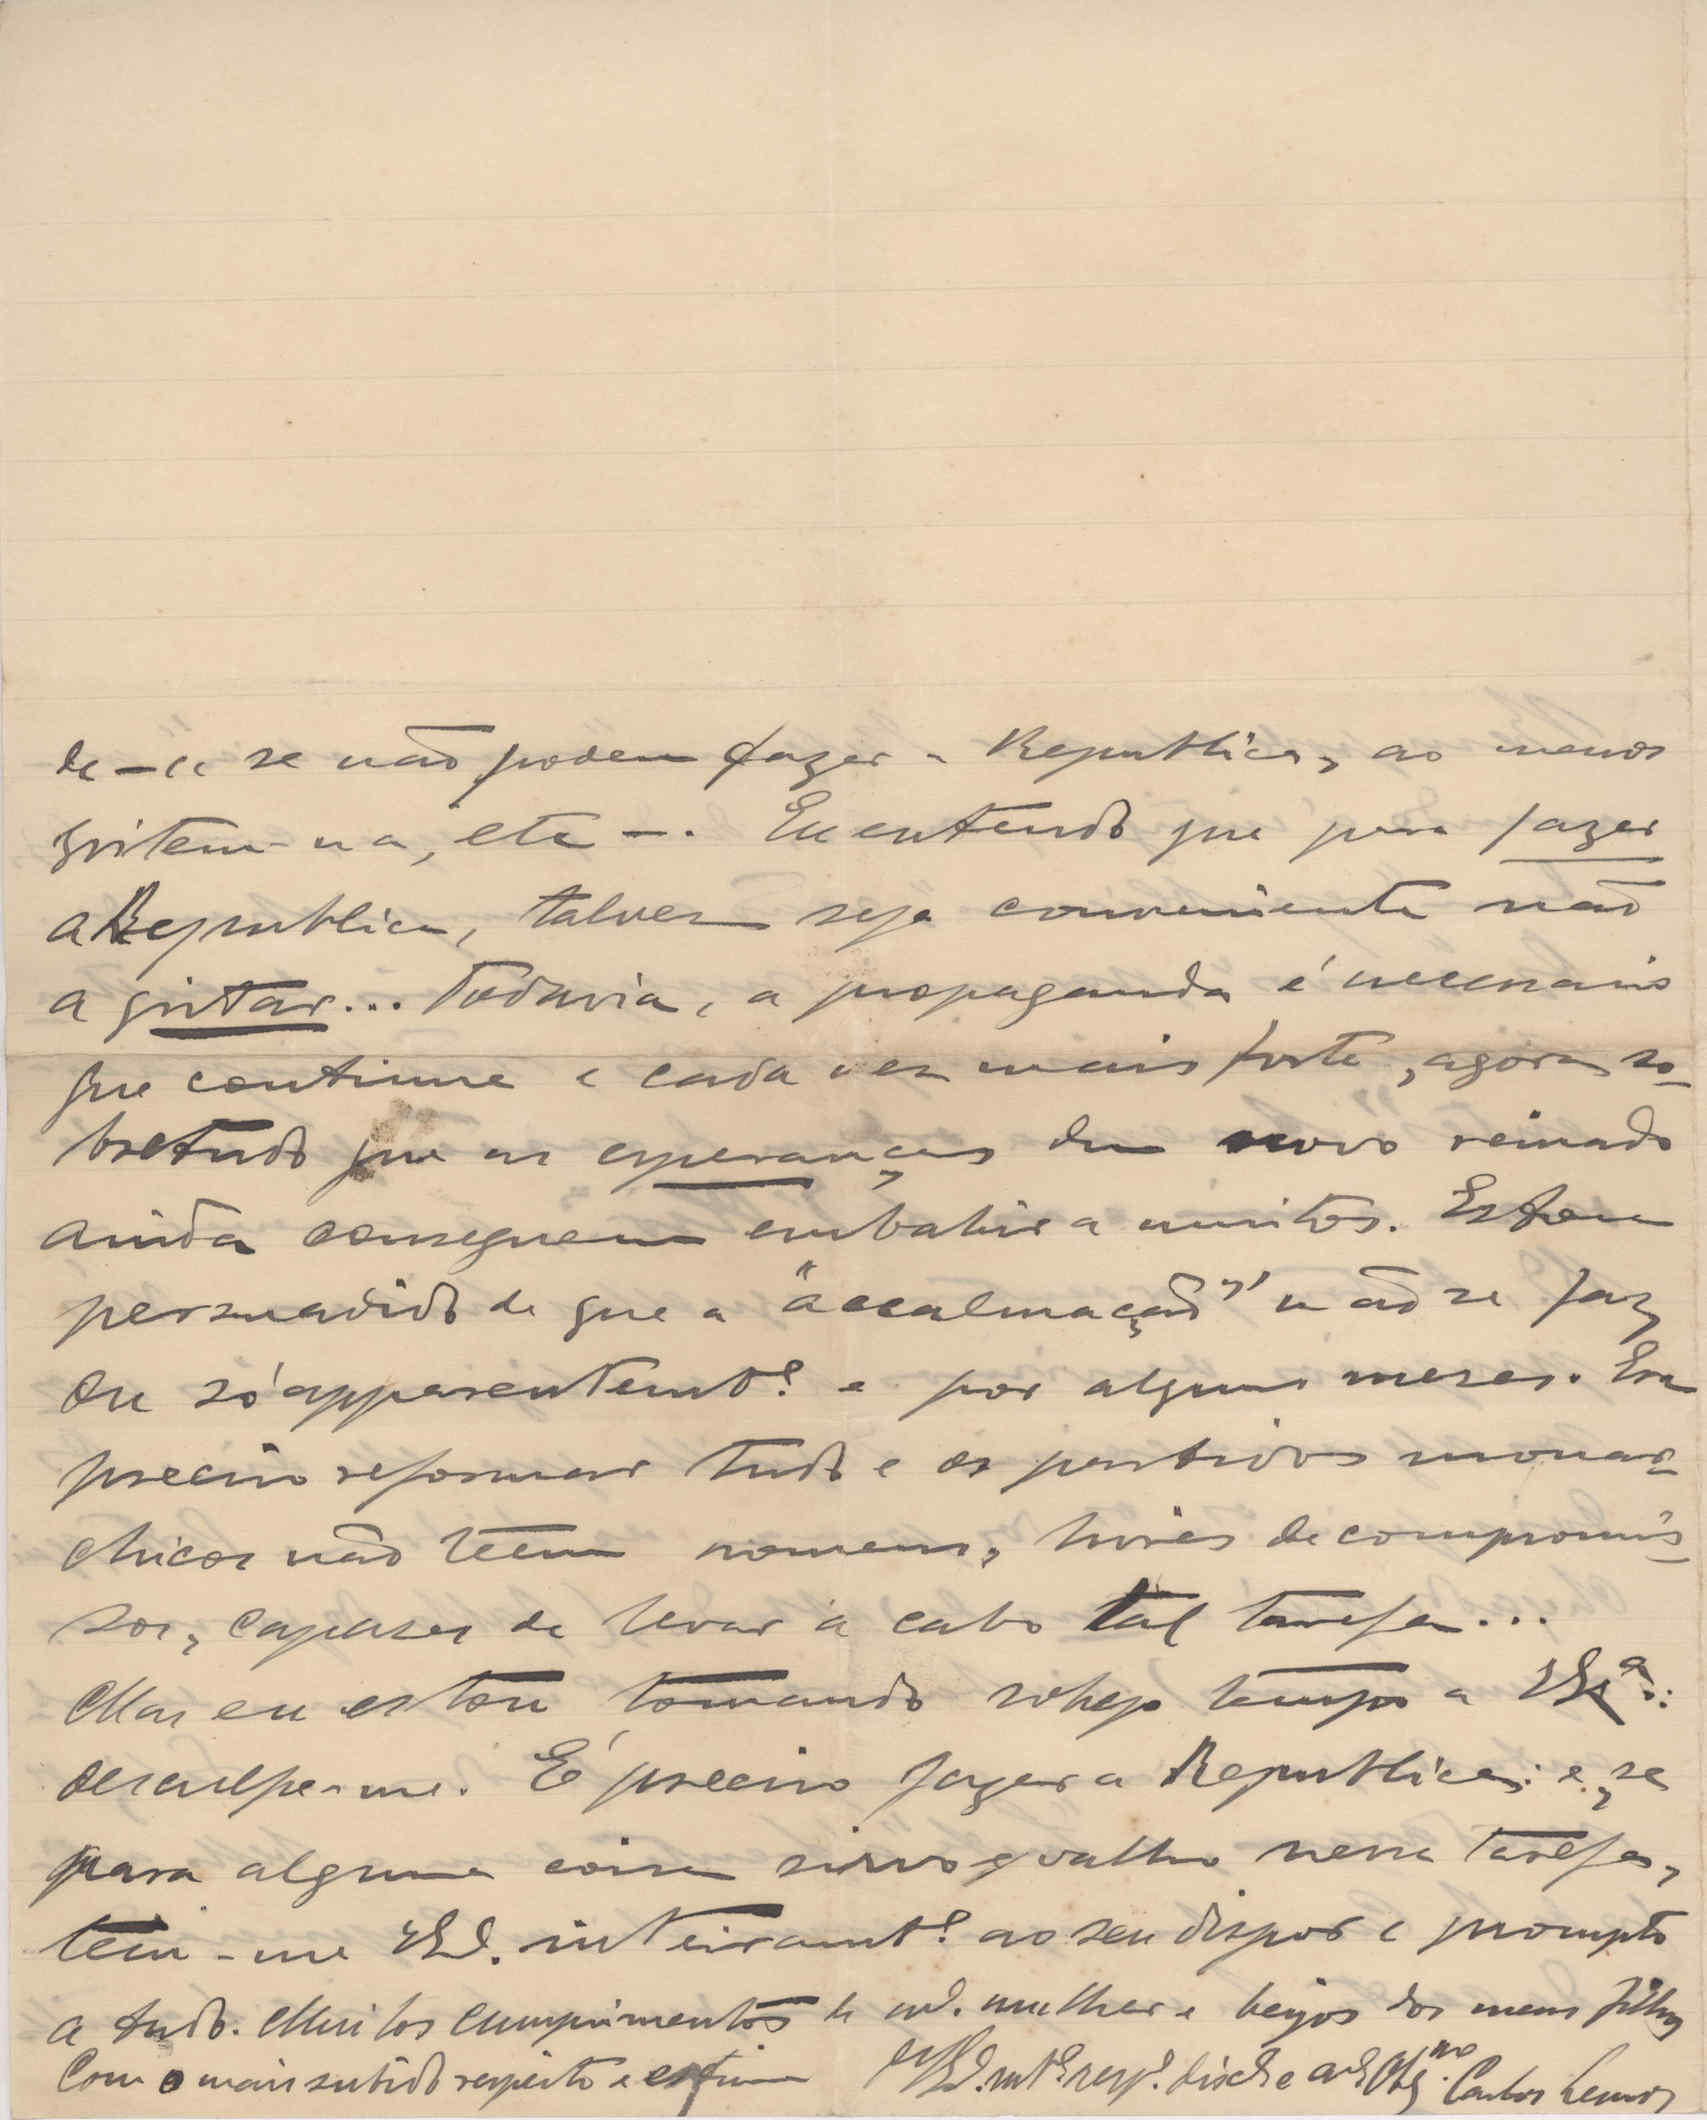 de — se não podem fazer a Republica, ao menos
gritem-na, etc —. Eu entendo que para fazer
a Republica, talvez seja conveniente não
a gritar... Todavia, a propaganda é necessario
que continue e cada vez mais forte, agora so-
bretudo que as esperanças dum novo reinado
ainda conseguem embahir a muitos. Estou
persuadido de que a "accalmação" não se faz
ou só apparentemte. e por alguns mezes. Era
preciso reformar tudo e os partidos monar-
chicos não teem homens, livres de compromis-
sos, capazes de levar a cabo tal tarefa...
Mas eu estou tomando sobejo tempo a V. Exa.:
desculpe-me. É preciso fazer a Republica: e, se
para alguma coisa sirvo e valho nessa tarefa,
tem-me V. E. inteiramte. ao seu dispor e prompto
a tudo. Muitos cumprimentos de m. mulher e beijos dos meus filhos
Com o mais subido respeito e estima
De V. E. mto. resp. disc. e adm. Obgmo. Carlos Lemos